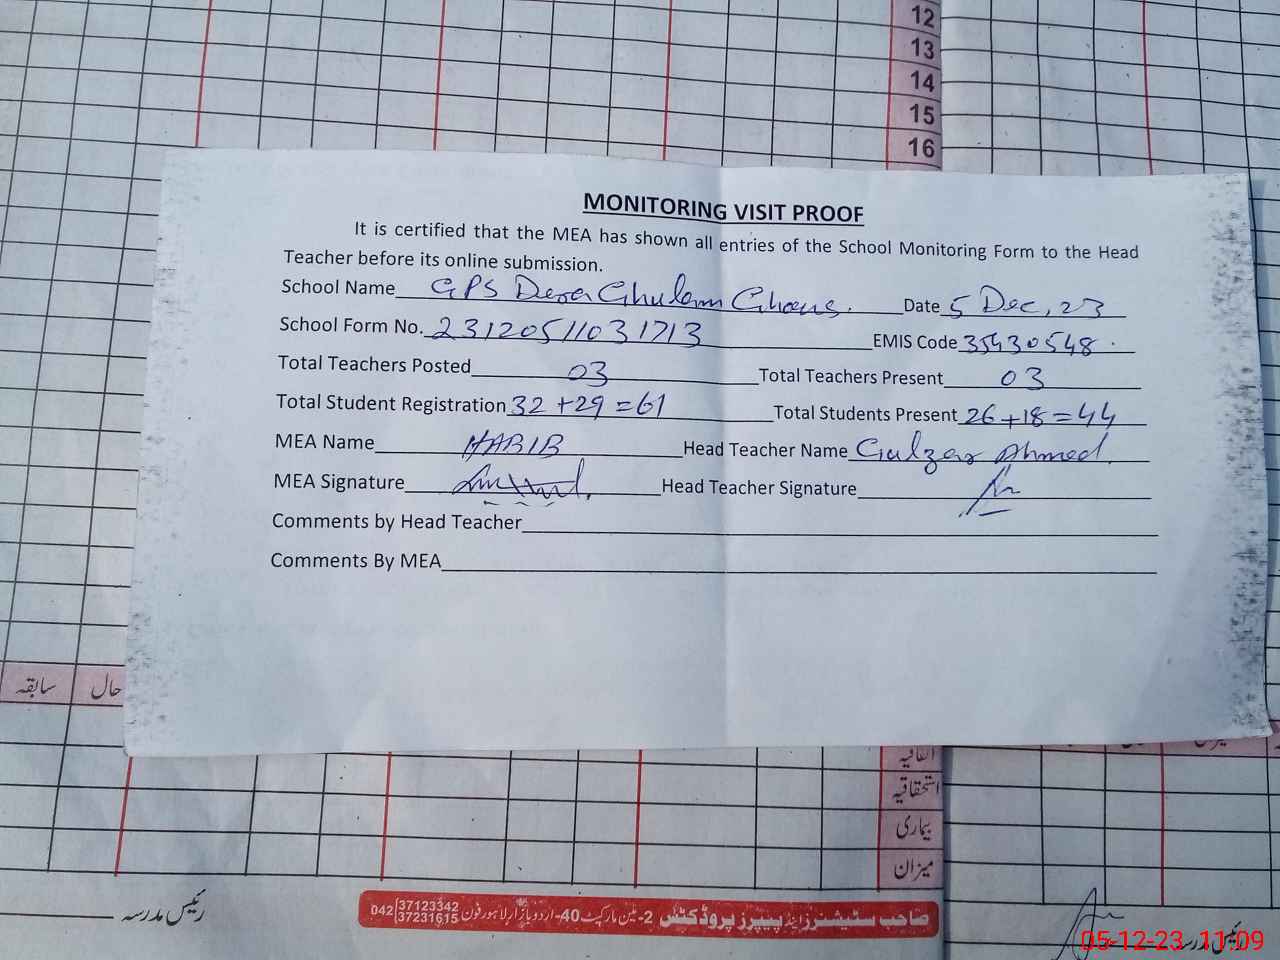 12
13
14
15
16
MONITORING VISIT PROOF
It is certified that the MEA has shown all entries of the School Monitoring Form to the Head
Teacher before its online submission.
School Name GPS Dera Ghulam Ghaus. Date 5 Dec, 23
School Form No. 2312051103 1713 EMIS Code 35430548.
Total Teachers Posted 03 Total Teachers Present 03
Total Student Registration 32 +29 =61 Total Students Present 26+18=44
MEA Name HABIB Head Teacher Name Gulzar Ahmed.
MEA Signature Head Teacher Signature
Comments by Head Teacher
Comments By MEA
سابقہ حال
اتفاقیہ
استحقاقیہ
بیماری
میزان
رئیس مدرسہ
صاحب سٹیشنرز اینڈ پیپرز پروڈکٹس 2-مین مارکیٹ 40-اردو بازار لاہور فون 042 37123342 37231615
رئیس مدرسہ
05-12-23 11:09